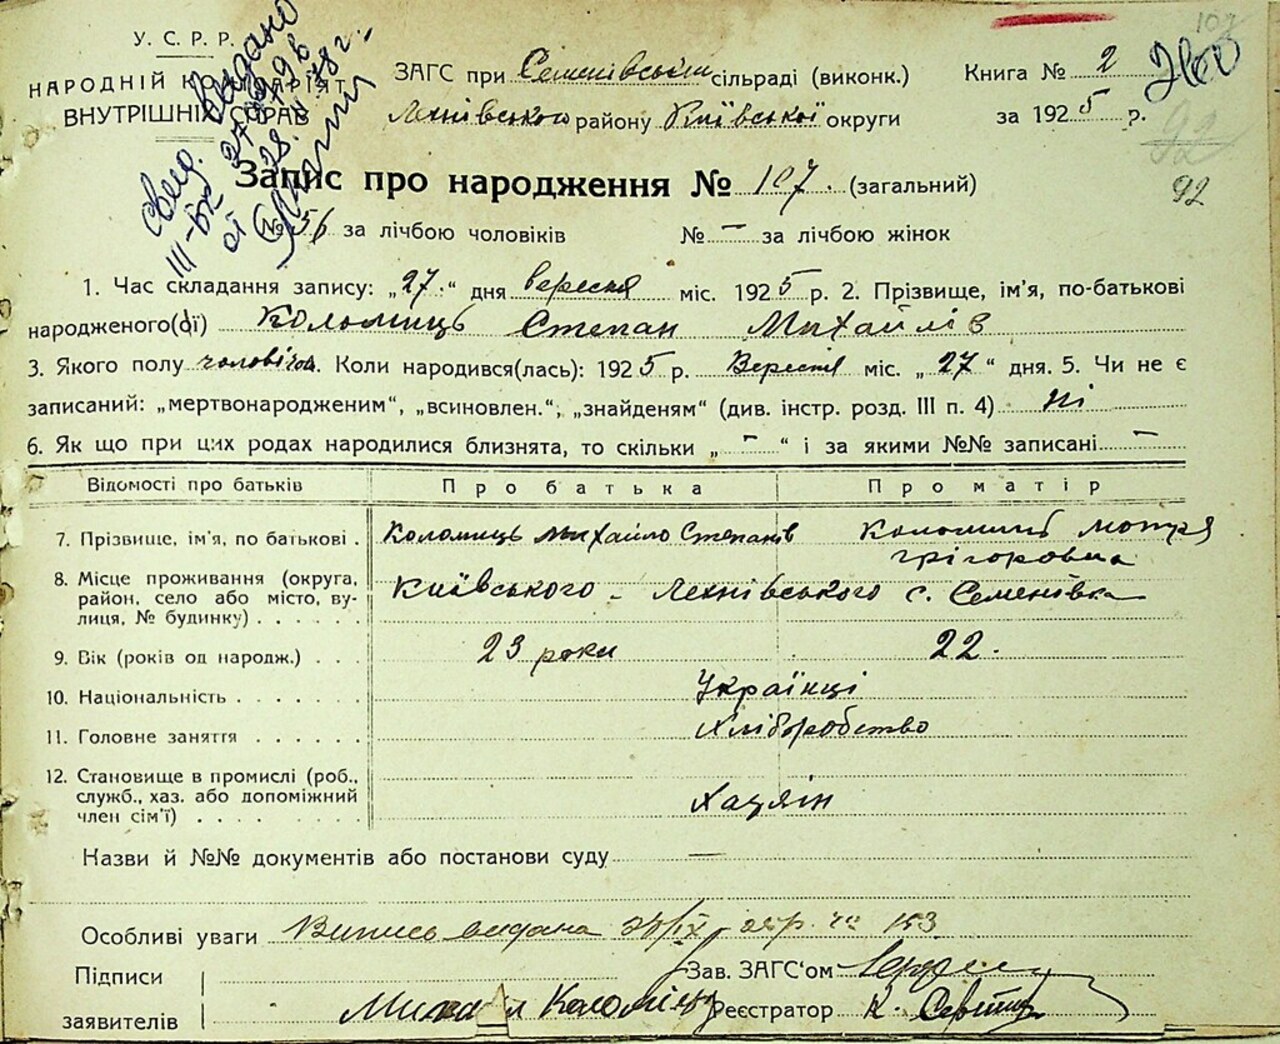 У. С. Р. Р.
НАРОДНІЙ КОМІСАРІЯТ
ВНУТРІШНІХ СПРАВ
Видано
свид.
III-БК
от 28.
78 г.
ЗАГС при Семенівським сільраді (виконк.)
Книга № 2
Яхнівського району Київської округи
за 1925 р.
92
92
Запис про народження № 107. (загальний)
№ 56 за лічбою чоловіків № – за лічбою жінок
1. Час складання запису: „27.“ дня вересня міс. 1925 р. 2. Прізвище, ім'я, по-батькові
народженого(ої) Коломиць Степан Михайлів
3. Якого полу чоловічого. Коли народився(лась): 1925 р. Вересня міс. „27“ дня. 5. Чи не є
записаний: „мертвонародженим“, „всиновлен.“, „знайденям“ (див. інстр. розд. III п. 4) ні
6. Як що при цих родах народилися близнята, то скільки „–“ і за якими №№ записані –
Відомості про батьків Про батька Про матір
7. Прізвище, ім'я, по батькові . Коломиць Михайло Степанів Коломиць Мотря
Грігоровна
8. Місце проживання (округа,
район, село або місто, ву-
лиця, № будинку) . . . . . . Київського - Яхнівського с. Семенівка
9. Вік (років од народж.) . . . 23 роки 22.
10. Національність . . . . . . . Українці
11. Головне заняття . . . . . . Хліборобство
12. Становище в промислі (роб.,
служб., хаз. або допоміжний
член сім'ї) . . . . . . . . Хазяїн
Назви й №№ документів або постанови суду —
Особливі уваги Випись видана
Підписи
заявителів
Зав. ЗАГС'ом
Михайл Коломієць Реєстратор К.